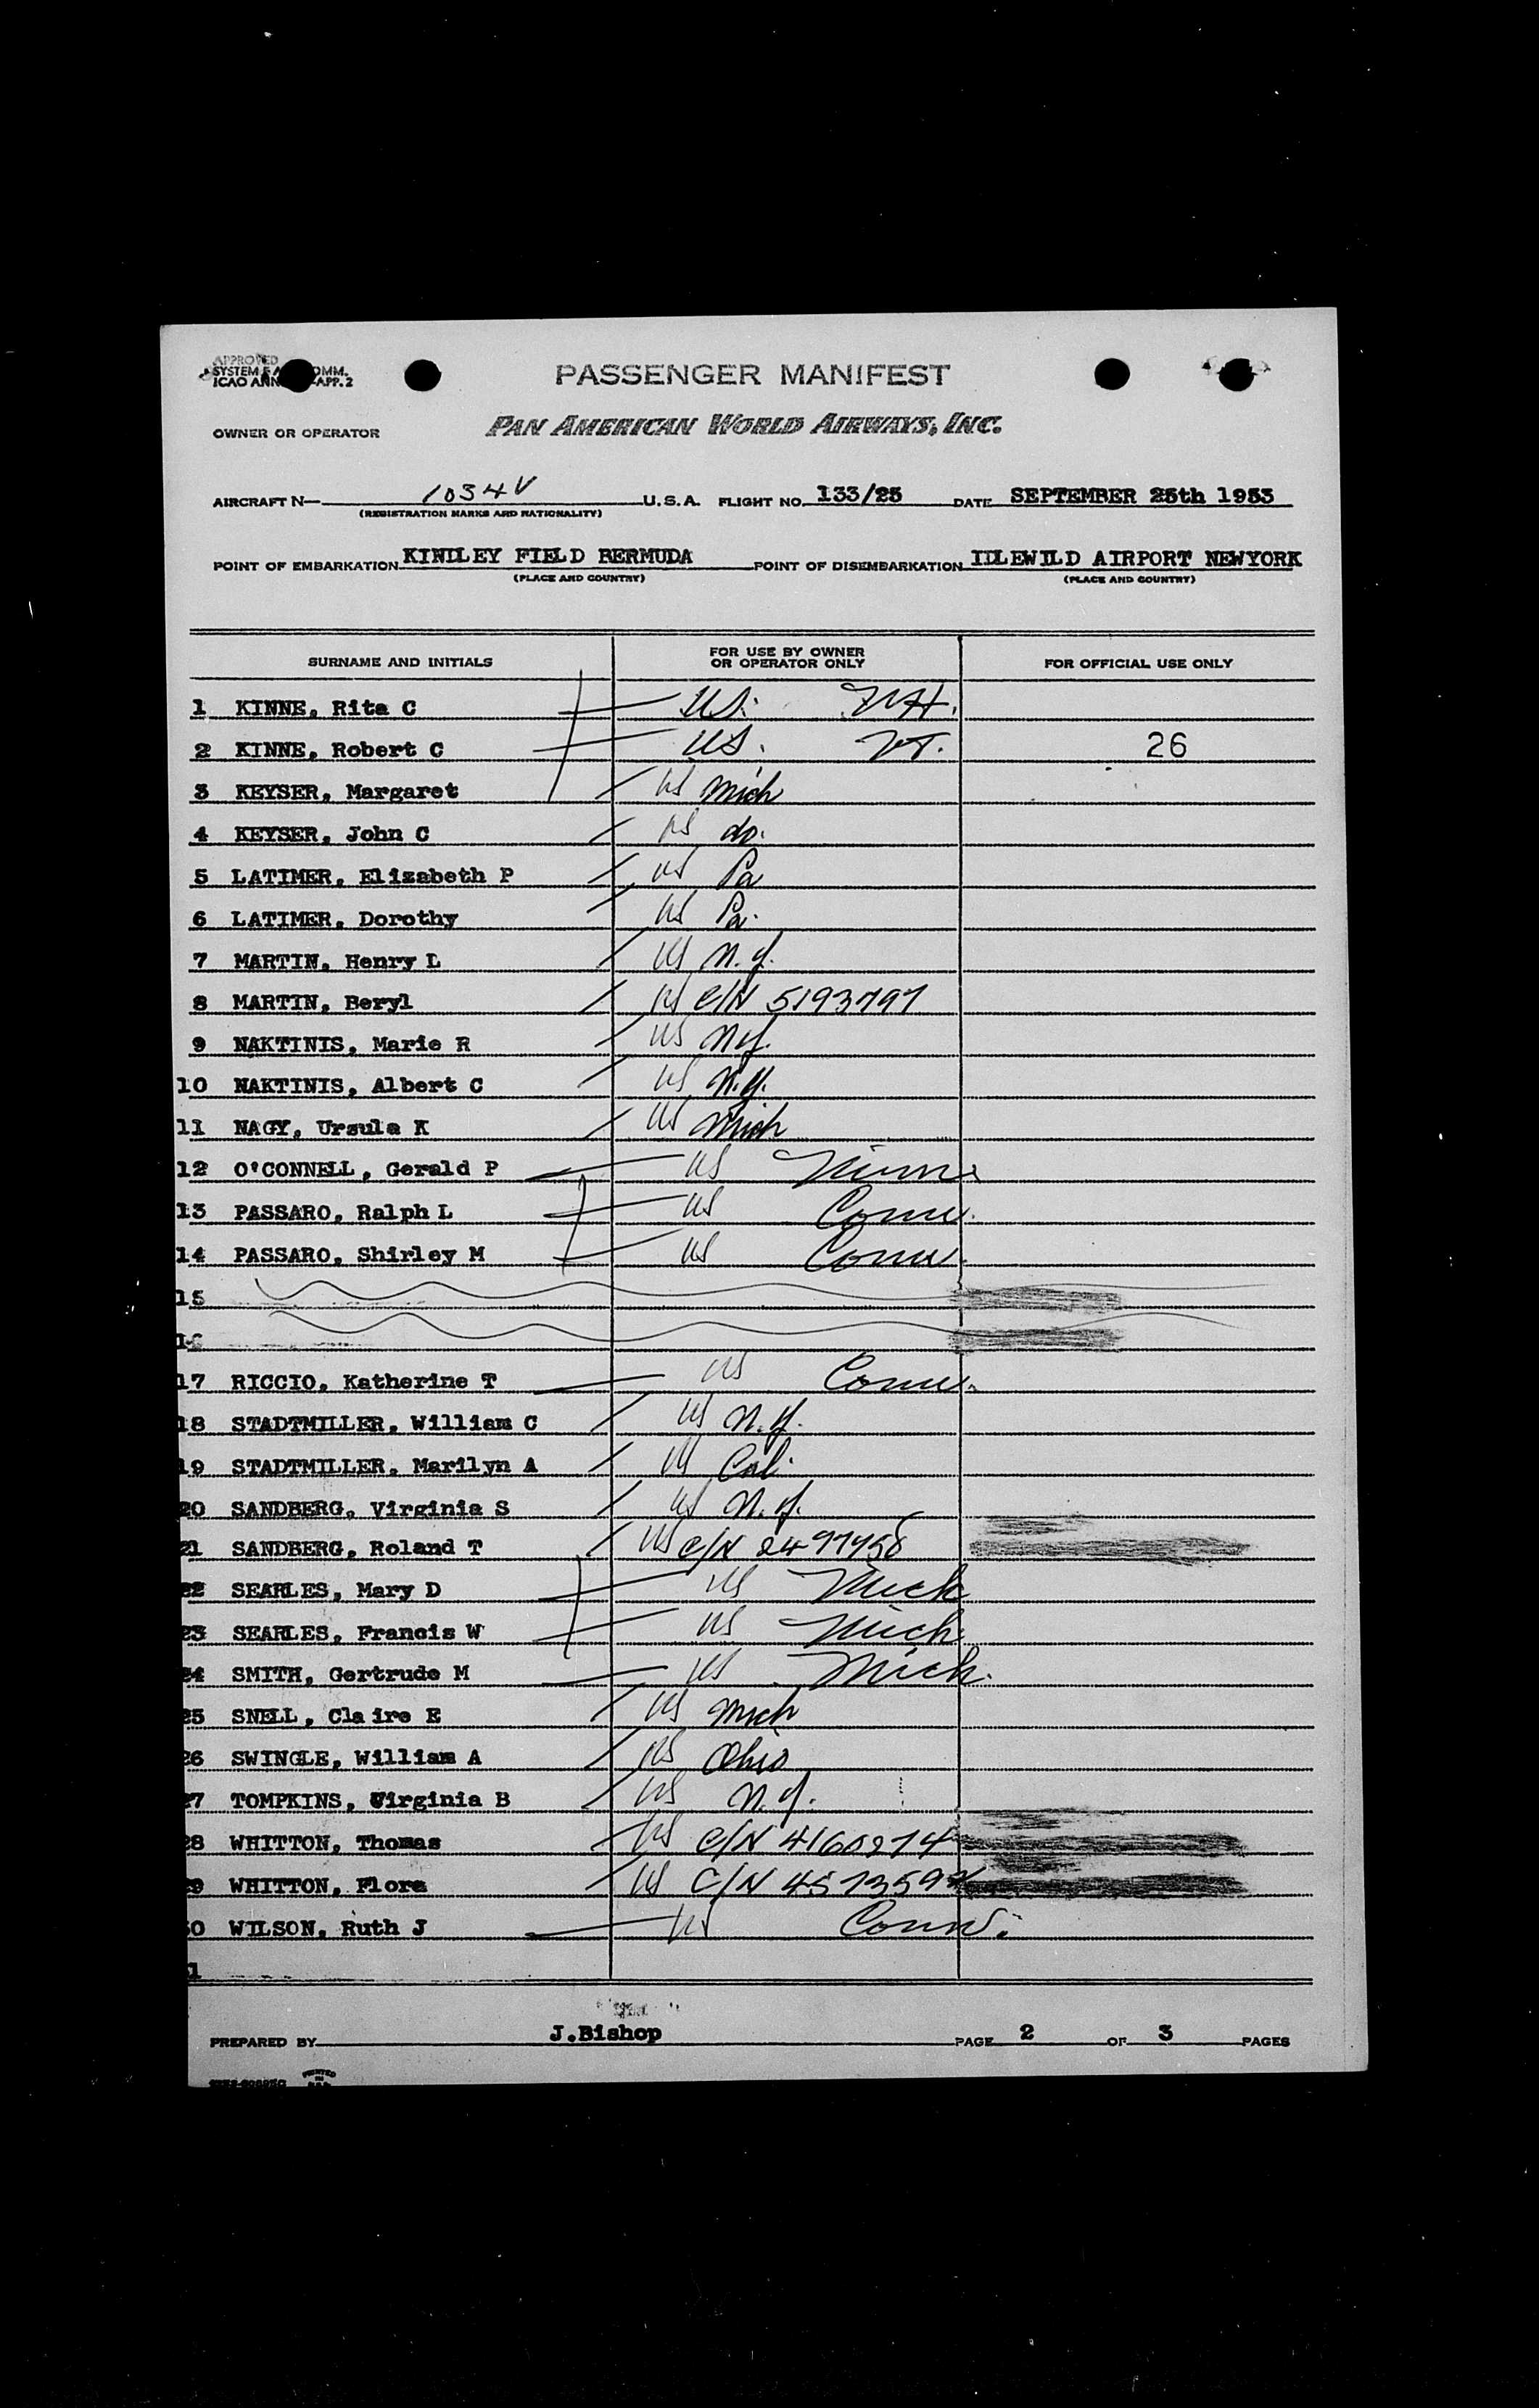 APPROVED
SYSTEM
ICAO APP. 2
PASSENGER MANIFEST
OWNER OR OPERATOR PAN AMERICAN WORLD AIRWAYS, INC.
AIRCRAFT N— 1034V U.S.A. FLIGHT NO. 133/25 DATE SEPTEMBER 25th 1953
(REGISTRATION MARKS AND NATIONALITY)
POINT OF EMBARKATION KINDLEY FIELD BERMUDA POINT OF DISEMBARKATION IDLEWILD AIRPORT NEWYORK
(PLACE AND COUNTRY) (PLACE AND COUNTRY)
SURNAME AND INITIALS FOR USE BY OWNER OR OPERATOR ONLY FOR OFFICIAL USE ONLY
1 KINNE, Rita C US. NH.
2 KINNE, Robert C US. VT. 26
3 KEYSER, Margaret US Mich
4 KEYSER, John C US do.
5 LATIMER, Elizabeth P US Pa
6 LATIMER, Dorothy US Pa.
7 MARTIN, Henry L US N.Y.
8 MARTIN, Beryl US C/N 5193797
9 NAKTINIS, Marie R US N.Y.
10 NAKTINIS, Albert C US N.Y.
11 NAGY, Ursula K US Mich
12 O'CONNELL, Gerald P US Minn.
13 PASSARO, Ralph L US Conn.
14 PASSARO, Shirley M US Conn.
15
16
17 RICCIO, Katherine T US Conn.
18 STADTMILLER, William C US N.Y.
19 STADTMILLER, Marilyn A US Cal.
20 SANDBERG, Virginia S US N.Y.
21 SANDBERG, Roland T US C/N
22 SEARLES, Mary D US Mich
23 SEARLES, Francis W US Mich.
24 SMITH, Gertrude M US Mich.
25 SNELL, Claire E US Mich
26 SWINGLE, William A US Ohio
27 TOMPKINS, Virginia B US N.Y.
28 WHITTON, Thomas US C/N 4160274
29 WHITTON, Flora US C/N
30 WILSON, Ruth J US Conn.
PREPARED BY J.Bishop PAGE 2 OF 3 PAGES
PRINTED